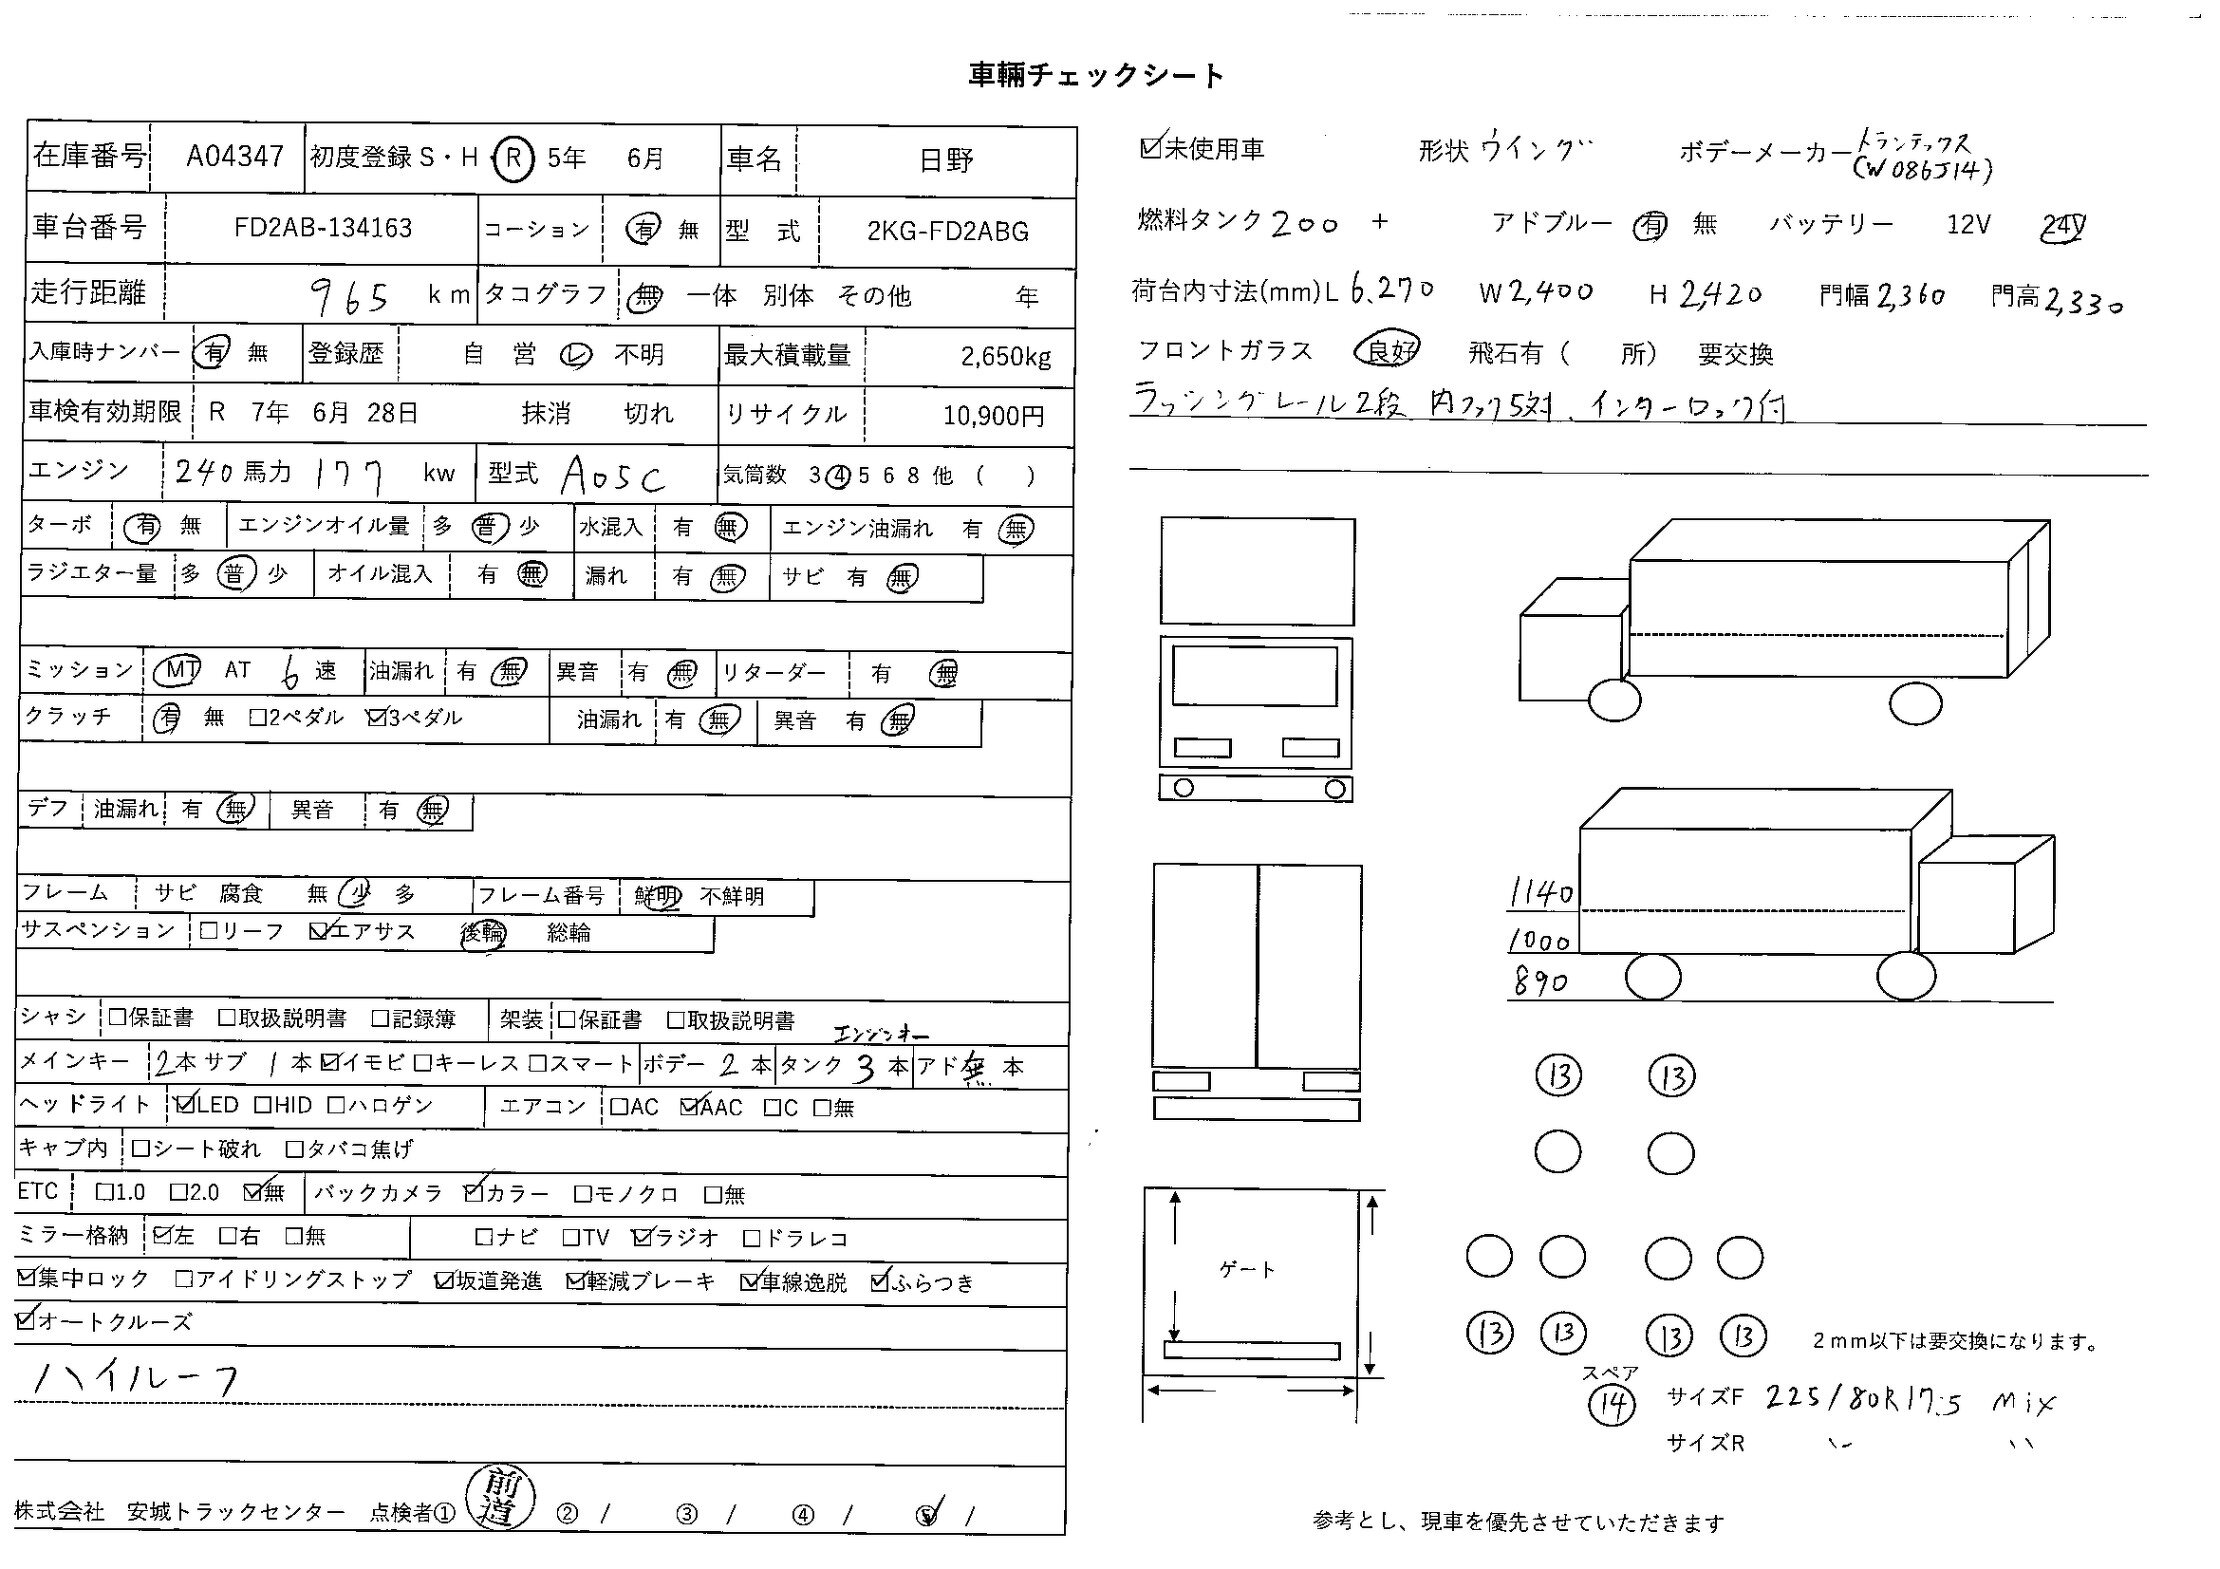 車輛チェックシート
在庫番号 A04347 初度登録 S・H Ⓡ 5年 6月 車名 日野
車台番号 FD2AB-134163 コーション 有 無 型 式 2KG-FD2ABG
走行距離 965 km タコグラフ 無 一体 別体 その他 年
入庫時ナンバー 有 無 登録歴 自 営 レ 不明 最大積載量 2,650kg
車検有効期限 R 7年 6月 28日 抹消 切れ リサイクル 10,900円
エンジン 240 馬力 177 kw 型式 A05C 気筒数 3 ④ 5 6 8 他 ( )
ターボ 有 無 エンジンオイル量 多 普 少 水混入 有 無 エンジン油漏れ 有 無
ラジエター量 多 普 少 オイル混入 有 無 漏れ 有 無 サビ 有 無
ミッション MT AT 6 速 油漏れ 有 無 異音 有 無 リターダー 有 無
クラッチ 有 無 □2ペダル ☑3ペダル 油漏れ 有 無 異音 有 無
デフ 油漏れ 有 無 異音 有 無
フレーム サビ 腐食 無 少 多 フレーム番号 鮮明 不鮮明
サスペンション □リーフ ☑エアサス 後輪 総輪
シャシ □保証書 □取扱説明書 □記録簿 架装 □保証書 □取扱説明書
エンジンキー
メインキー 2本 サブ 1 本 ☑イモビ □キーレス □スマート ボデー 2 本 タンク 3 本 アド 無 本
ヘッドライト ☑LED □HID □ハロゲン エアコン □AC ☑AAC □C □無
キャブ内 □シート破れ □タバコ焦げ
ETC □1.0 □2.0 ☑無 バックカメラ ☑カラー □モノクロ □無
ミラー格納 ☑左 □右 □無 □ナビ □TV ☑ラジオ □ドラレコ
☑集中ロック □アイドリングストップ ☑坂道発進 ☑軽減ブレーキ ☑車線逸脱 ☑ふらつき
☑オートクルーズ
ハイルーフ
株式会社 安城トラックセンター 点検者① 前道 ② / ③ / ④ / ⑤ /
☑未使用車 形状 ウイング ボデーメーカー トランテックス
(W086J14)
燃料タンク 200 + アドブルー 有 無 バッテリー 12V 24V
荷台内寸法(mm) L 6,270 W 2,400 H 2,420 門幅 2,360 門高 2,330
フロントガラス 良好 飛石有 ( 所) 要交換
ラッシングレール2段 内フック5対、インターロック付
1140
1000
890
13 13
ゲート
13 13 13 13 2mm以下は要交換になります。
スペア
14 サイズF 225/80R17.5 Mix
サイズR 〃 〃
参考とし、現車を優先させていただきます